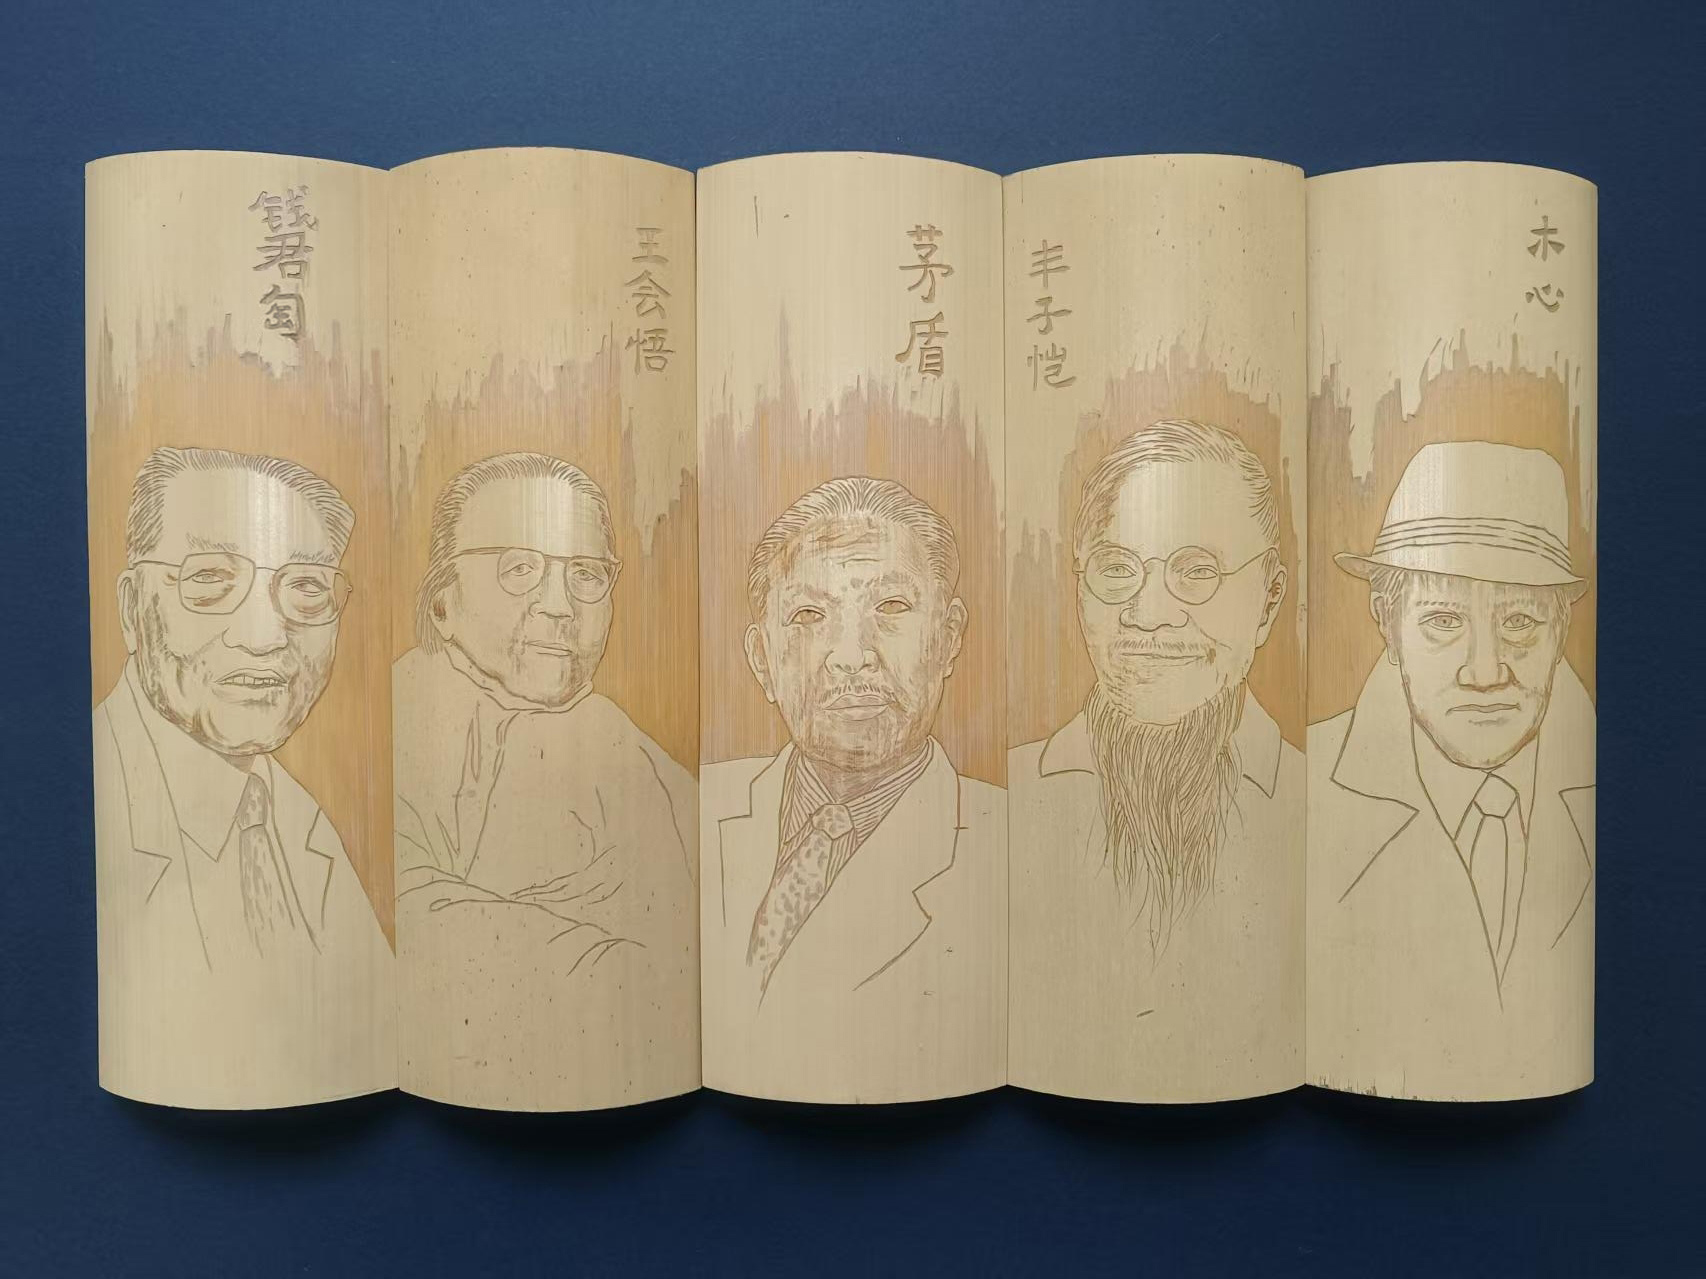 钱君匋
王会悟
茅盾
丰子恺
木心